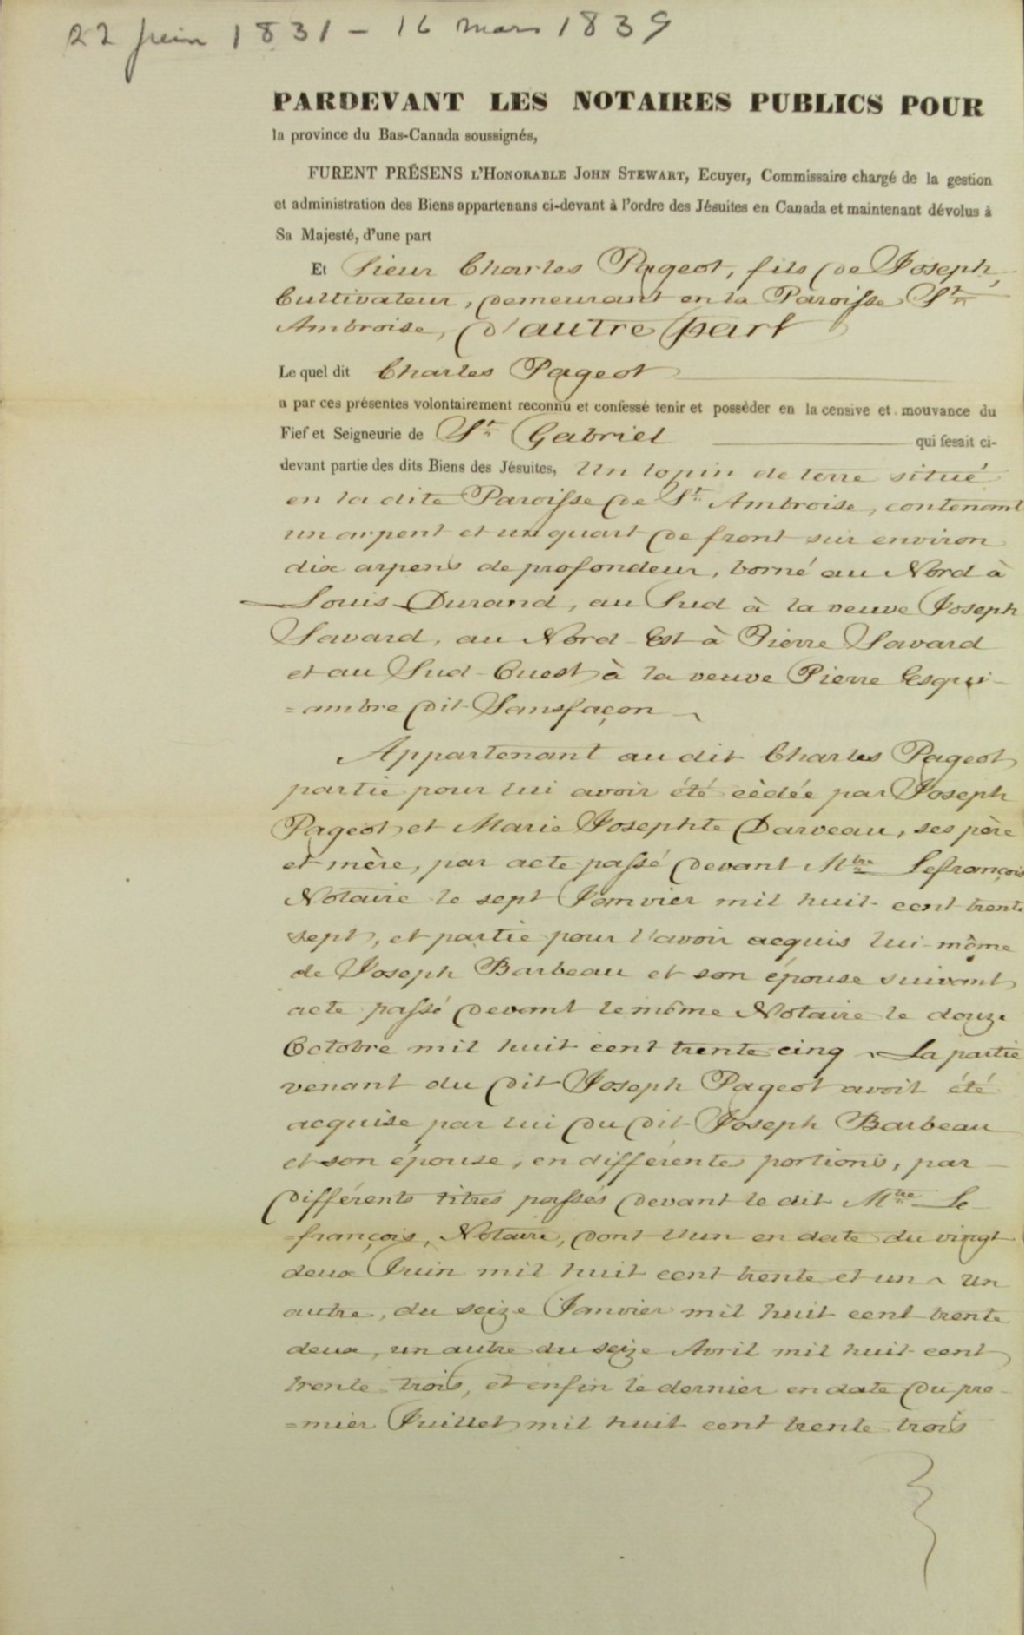 22 juin 1831 - 16 mars 1839
PARDEVANT LES NOTAIRES PUBLICS POUR
la province du Bas-Canada soussignés,
FURENT PRÉSENS L'HONORABLE JOHN STEWART, Ecuyer, Commissaire chargé de la gestion
et administration des Biens appartenans ci-devant à l'ordre des Jésuites en Canada et maintenant dévolus à
Sa Majesté, d'une part
Et Sieur Charles Pageot, fils de Joseph,
Cultivateur, demeurant en la Paroisse St
Ambroise, d'autre part
Le quel dit Charles Pageot
a par ces présentes volontairement reconnu et confessé tenir et posséder en la censive et mouvance du
Fief et Seigneurie de St Gabriel qui fesait ci-
devant partie des dits Biens des Jésuites, Un lopin de terre situé
en la dite Paroisse de St Ambroise, contenant
un arpent et un quart de front sur environ
dix arpens de profondeur, borné au Nord à
Louis Durand, au Sud à la veuve Joseph
Savard, au Nord-Est à Pierre Savard
et au Sud-Ouest à la veuve Pierre Esqui-
=ambre dit Sansfaçon
Appartenant au dit Charles Pageot
partie pour lui avoir été cèdée par Joseph
Pageot et Marie Josephte Darveau, ses père
et mère, par acte passé devant Mtre Lefrançois
Notaire le sept Janvier mil huit cent trente
sept, et partie pour l'avoir acquis lui-même
de Joseph Barbeau et son épouse suivant
acte passé devant le même Notaire le douze
Octobre mil huit cent trente cinq. La partie
venant du dit Joseph Pageot avoit été
acquise par lui du dit Joseph Barbeau
et son épouse, en différentes portions, par
différents titres passés devant le dit Mtre Le-
=françois, Notaire, dont l'un en date du vingt
deux Juin mil huit cent trente et un, un
autre, du seize Janvier mil huit cent trente
deux, un autre du seize Avril mil huit cent
trente trois, et enfin le dernier en date du pre-
=mier Juillet mil huit cent trente trois